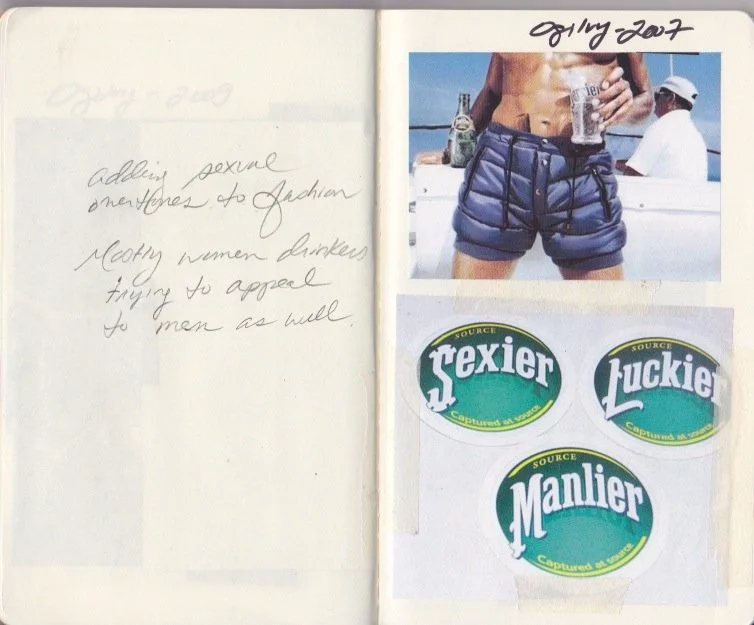 adding sexual
overtones to fashion
Mostly women drinkers
trying to appeal
to men as well.
Ogilvy - 2007
SOURCE
Sexier
Captured at source
SOURCE
Luckier
Captured at source
SOURCE
Manlier
Captured at source